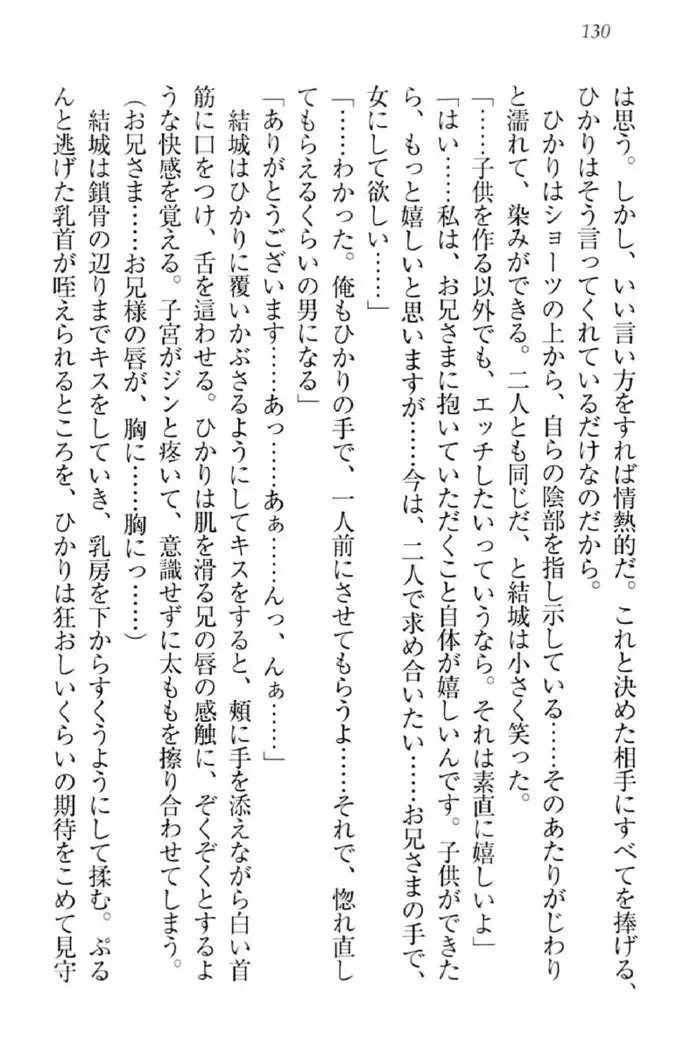 130
は思う。しかし、いい言い方をすれば情熱的だ。これと決めた相手にすべてを捧げる、
ひかりはそう言ってくれているだけなのだから。
ひかりはショーツの上から、自らの陰部を指し示している……そのあたりがじわり
と濡れて、染みができる。二人とも同じだ、と結城は小さく笑った。
「……子供を作る以外でも、エッチしたいっていうなら。それは素直に嬉しいよ」
「はい……私は、お兄さまに抱いていただくこと自体が嬉しいんです。子供ができた
ら、もっと嬉しいと思いますが……今は、二人で求め合いたい……お兄さまの手で、
女にして欲しい……」
「……わかった。俺もひかりの手で、一人前にさせてもらうよ……それで、惚れ直し
てもらえるくらいの男になる」
「ありがとうございます……あっ……あぁ……んっ、んぁ……」
結城はひかりに覆いかぶさるようにしてキスをすると、頬に手を添えながら白い首
筋に口をつけ、舌を這わせる。ひかりは肌を滑る兄の唇の感触に、ぞくぞくとするよ
うな快感を覚える。子宮がジンと疼いて、意識せずに太ももを擦り合わせてしまう。
（お兄さま……お兄様の唇が、胸に……胸にっ……）
結城は鎖骨の辺りまでキスをしていき、乳房を下からすくうようにして揉む。ぷる
んと逃げた乳首が咥えられるところを、ひかりは狂おしいくらいの期待をこめて見守